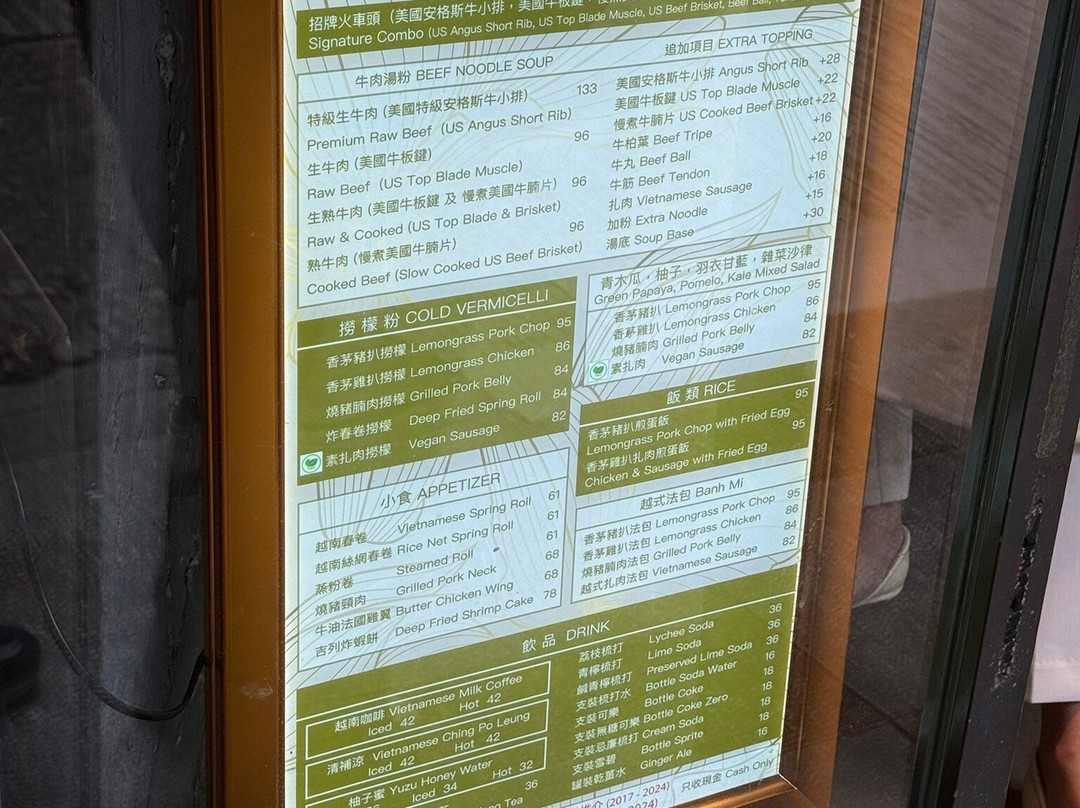 招牌火車頭 (美國安格斯牛小排，美國牛板鍵
Signature Combo (US Angus Short Rib, US Top Blade Muscle, US Beef Brisket, Beef Ball,
牛肉湯粉 BEEF NOODLE SOUP
特級生牛肉 (美國特級安格斯牛小排) 133
Premium Raw Beef (US Angus Short Rib)
生牛肉 (美國牛板鍵) 96
Raw Beef (US Top Blade Muscle)
生熟牛肉 (美國牛板鍵 及 慢煮美國牛腩片) 96
Raw & Cooked (US Top Blade & Brisket)
熟牛肉 (慢煮美國牛腩片) 96
Cooked Beef (Slow Cooked US Beef Brisket)
追加項目 EXTRA TOPPING
美國安格斯牛小排 Angus Short Rib +28
美國牛板鍵 US Top Blade Muscle +22
慢煮牛腩片 US Cooked Beef Brisket +22
牛柏葉 Beef Tripe +16
牛丸 Beef Ball +20
牛筋 Beef Tendon +18
扎肉 Vietnamese Sausage +16
加粉 Extra Noodle +15
湯底 Soup Base +30
撈檬粉 COLD VERMICELLI
香茅豬扒撈檬 Lemongrass Pork Chop 95
香茅雞扒撈檬 Lemongrass Chicken 86
燒豬腩肉撈檬 Grilled Pork Belly 84
炸春卷撈檬 Deep Fried Spring Roll 84
素扎肉撈檬 Vegan Sausage 82
青木瓜，柚子，羽衣甘藍，雜菜沙律
Green Papaya, Pomelo, Kale Mixed Salad
香茅豬扒 Lemongrass Pork Chop 95
香茅雞扒 Lemongrass Chicken 86
燒豬腩肉 Grilled Pork Belly 84
素扎肉 Vegan Sausage 82
飯 類 RICE
香茅豬扒煎蛋飯 95
Lemongrass Pork Chop with Fried Egg
香茅雞扒扎肉煎蛋飯 95
Chicken & Sausage with Fried Egg
小食 APPETIZER
越南春卷 Vietnamese Spring Roll 61
越南絲網春卷 Rice Net Spring Roll 61
蒸粉卷 Steamed Roll 61
燒豬頸肉 Grilled Pork Neck 68
牛油法國雞翼 Butter Chicken Wing 68
吉列炸蝦餅 Deep Fried Shrimp Cake 78
越式法包 Banh Mi
香茅豬扒法包 Lemongrass Pork Chop 95
香茅雞扒法包 Lemongrass Chicken 86
燒豬腩肉法包 Grilled Pork Belly 84
越式扎肉法包 Vietnamese Sausage 82
飲 品 DRINK
越南咖啡 Vietnamese Milk Coffee
Iced 42 Hot 42
清補涼 Vietnamese Ching Po Leung
Iced 42 Hot 42
柚子蜜 Yuzu Honey Water
Iced 34 Hot 32
Tea 36
荔枝梳打 Lychee Soda 36
青檸梳打 Lime Soda 36
鹹青檸梳打 Preserved Lime Soda 36
支裝梳打水 Bottle Soda Water 16
支裝可樂 Bottle Coke 18
支裝無糖可樂 Bottle Coke Zero 18
支裝忌廉梳打 Cream Soda 18
支裝雪碧 Bottle Sprite 18
罐裝乾薑水 Ginger Ale 16
推介 (2017 - 2024) 只收現金 Cash Only
2024)